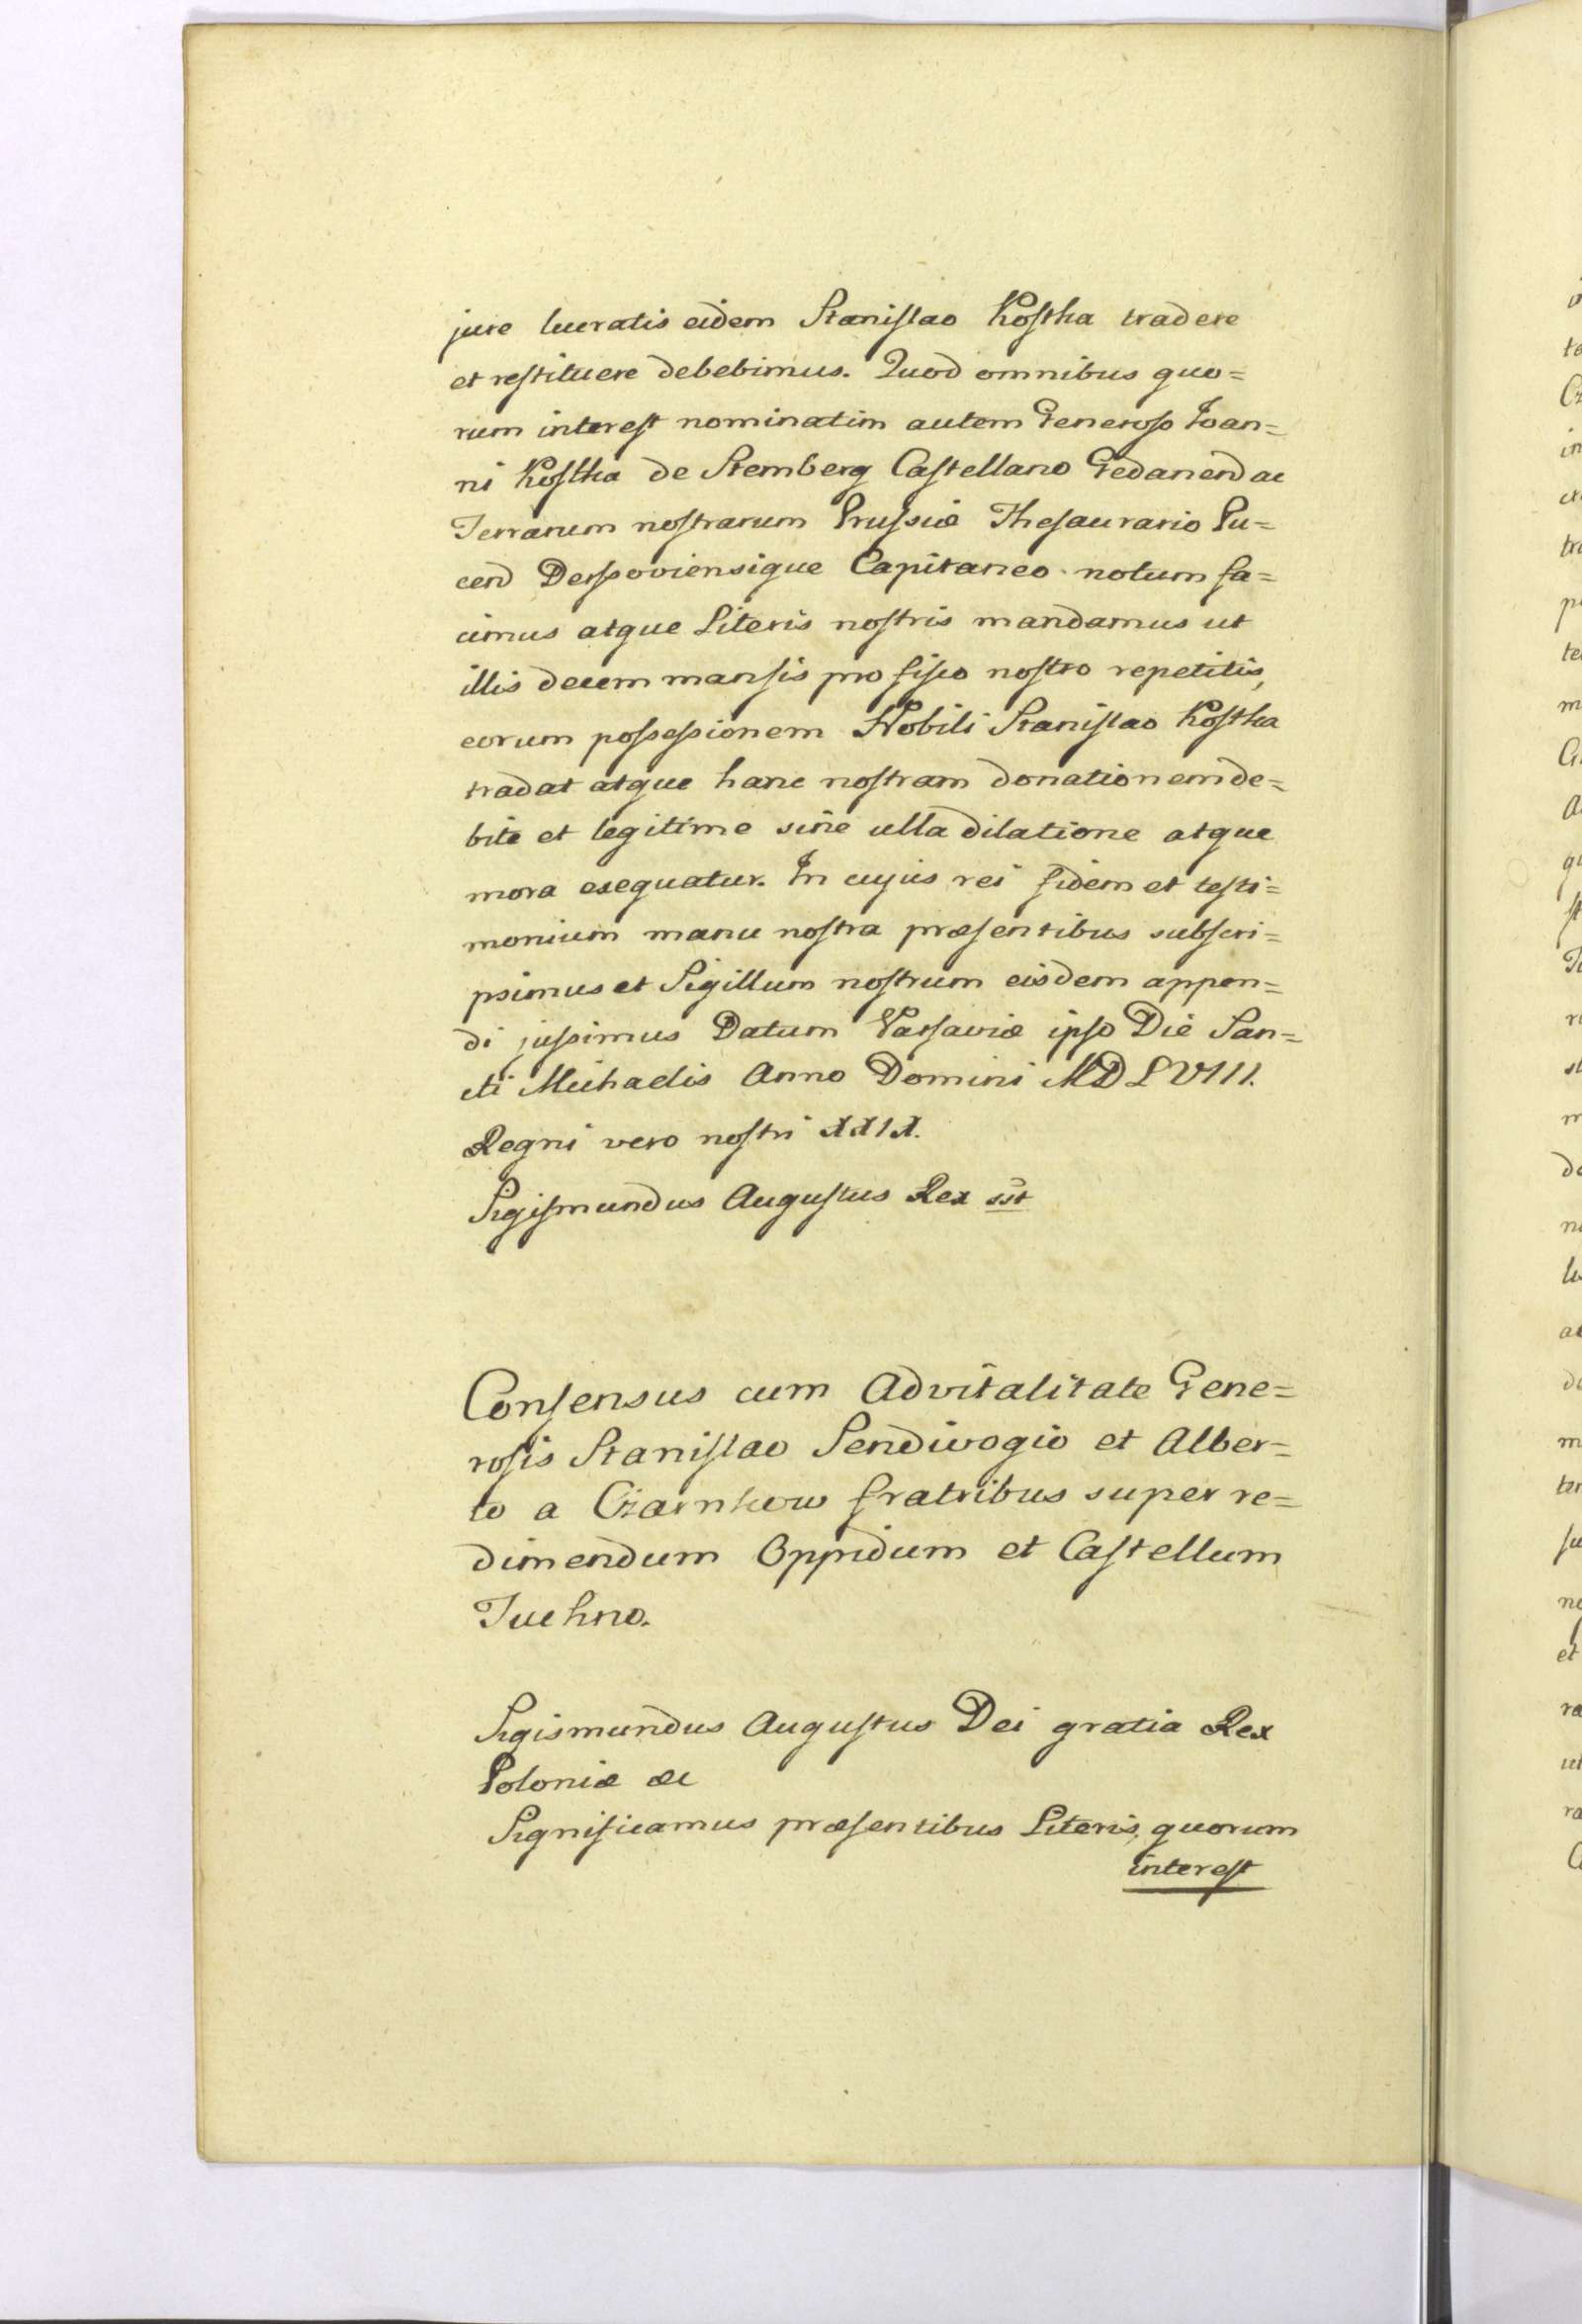 jure lucratis eidem Stanislao Kostka tradere
et restituere debebimus. Quod omnibus quo=
rum interest nominatim autem Generoso Joan=
ni Kostka de Stemberg Castellano Gedanend ac
Terrarum nostrarum Prussiæ Thesaurario Pu=
cend Derssoviensique Capitaneo notum fa=
cimus atque Literis nostris mandamus ut
illis decem mansis pro fisco nostro repetitis,
eorum possessionem Nobili Stanislao Kostka
tradat atque hanc nostram donationem de=
bite et legitime sine ulla dilatione atque
mora exequatur. In cujus rei fidem et testi=
monium manu nostra præsentibus subscri=
psimus et Sigillum nostrum eisdem appen=
di jussimus Datum Varsaviæ ipso Die San=
cti Michaelis Anno Domini MDLVIII.
Regni vero nostri XXIX.
Sigismundus Augustus Rex sst
Consensus cum Advitalitate Gene=
rosis Stanislao Sendivogio et Alber=
to a Czarnkow fratribus super re=
dimendum Oppidum et Castellum
Tuchno.
Sigismundus Augustus Dei gratia Rex
Poloniæ &c
Significamus præsentibus Literis, quorum
interest